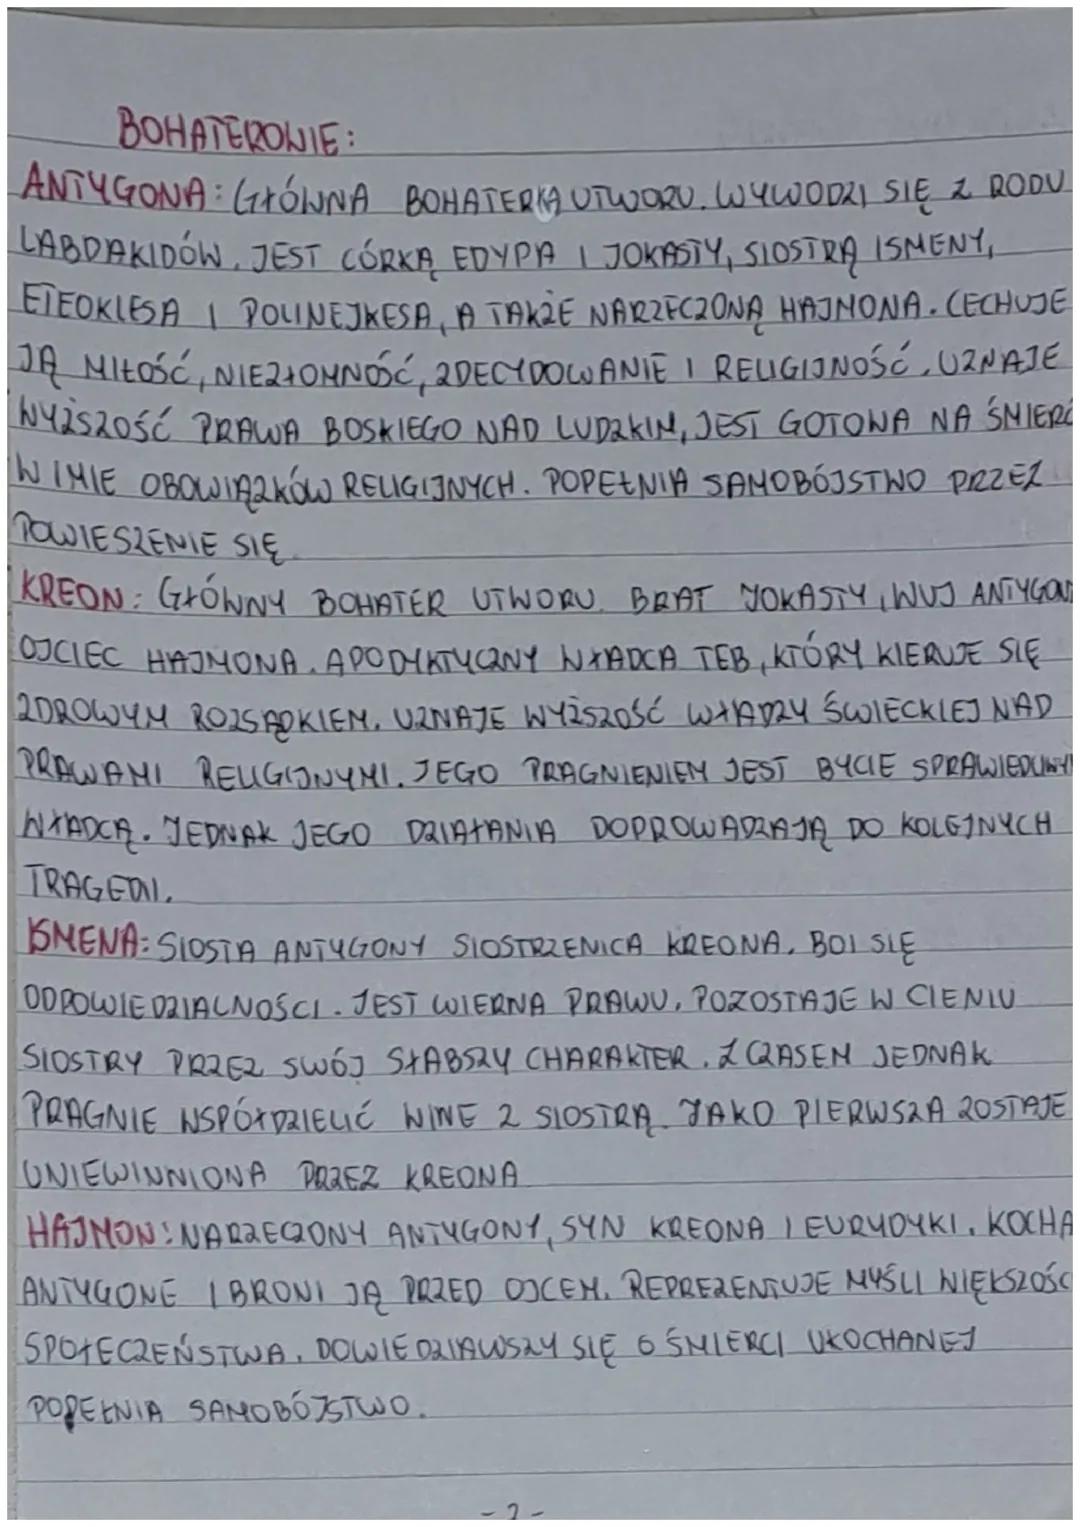 BOHATEROWIE:
ANTYGONA: GŁÓWNA BOHATERKA UTWORU. WYWODZI SIĘ Z RODU
LABDAKIDÓW. JEST CÓRKĄ EDYPA I JOKASTY, SIOSTRĄ ISMENY,
ETEOKLESA I POLINEJKESA, A TAKŻE NARZECZONĄ HAJMONA. CECHUJE
JĄ MIŁOŚĆ, NIEZŁOMNOŚĆ, ZDECYDOWANIE I RELIGIJNOŚĆ. UZNAJE
WYŻSZOŚĆ PRAWA BOSKIEGO NAD LUDZKIM, JEST GOTOWA NA ŚMIERĆ
W IMIE OBOWIĄZKÓW RELIGIJNYCH. POPEŁNIA SAMOBÓJSTWO PRZEZ
POWIESZENIE SIĘ.
KREON: GŁÓWNY BOHATER UTWORU. BRAT JOKASTY, WUJ ANTYGON
OJCIEC HAJMONA. APODYKTYCZNY WŁADCA TEB, KTÓRY KIERUJE SIĘ
ZDROWYM ROZSĄDKIEM. UZNAJE WYŻSZOŚĆ WŁADZY ŚWIECKIEJ NAD
PRAWAMI RELIGIJNYMI. JEGO PRAGNIENIEM JEST BYCIE SPRAWIEDLIWY
WŁADCĄ. JEDNAK JEGO DZIAŁANIA DOPROWADZAJĄ DO KOLEJNYCH
TRAGEDII.
ISMENA: SIOSTA ANTYGONY SIOSTRZENICA KREONA. BOI SIĘ
ODPOWIEDZIALNOŚCI. JEST WIERNA PRAWU. POZOSTAJE W CIENIU
SIOSTRY PRZEZ SWÓJ SŁABSZY CHARAKTER. Z CZASEM JEDNAK
PRAGNIE WSPÓŁDZIELIĆ WINE Z SIOSTRĄ. JAKO PIERWSZA ZOSTAJE
UNIEWINNIONA PRZEZ KREONA
HAJMON: NARZECZONY ANTYGONY, SYN KREONA I EURYDYKI. KOCHA
ANTYGONE I BRONI JĄ PRZED OJCEM. REPREZENTUJE MYŚLI WIĘKSZOŚC
SPOŁECZEŃSTWA. DOWIEDZIAWSZY SIĘ O ŚMIERCI UKOCHANEJ
POPEŁNIA SAMOBÓJSTWO.
-2-